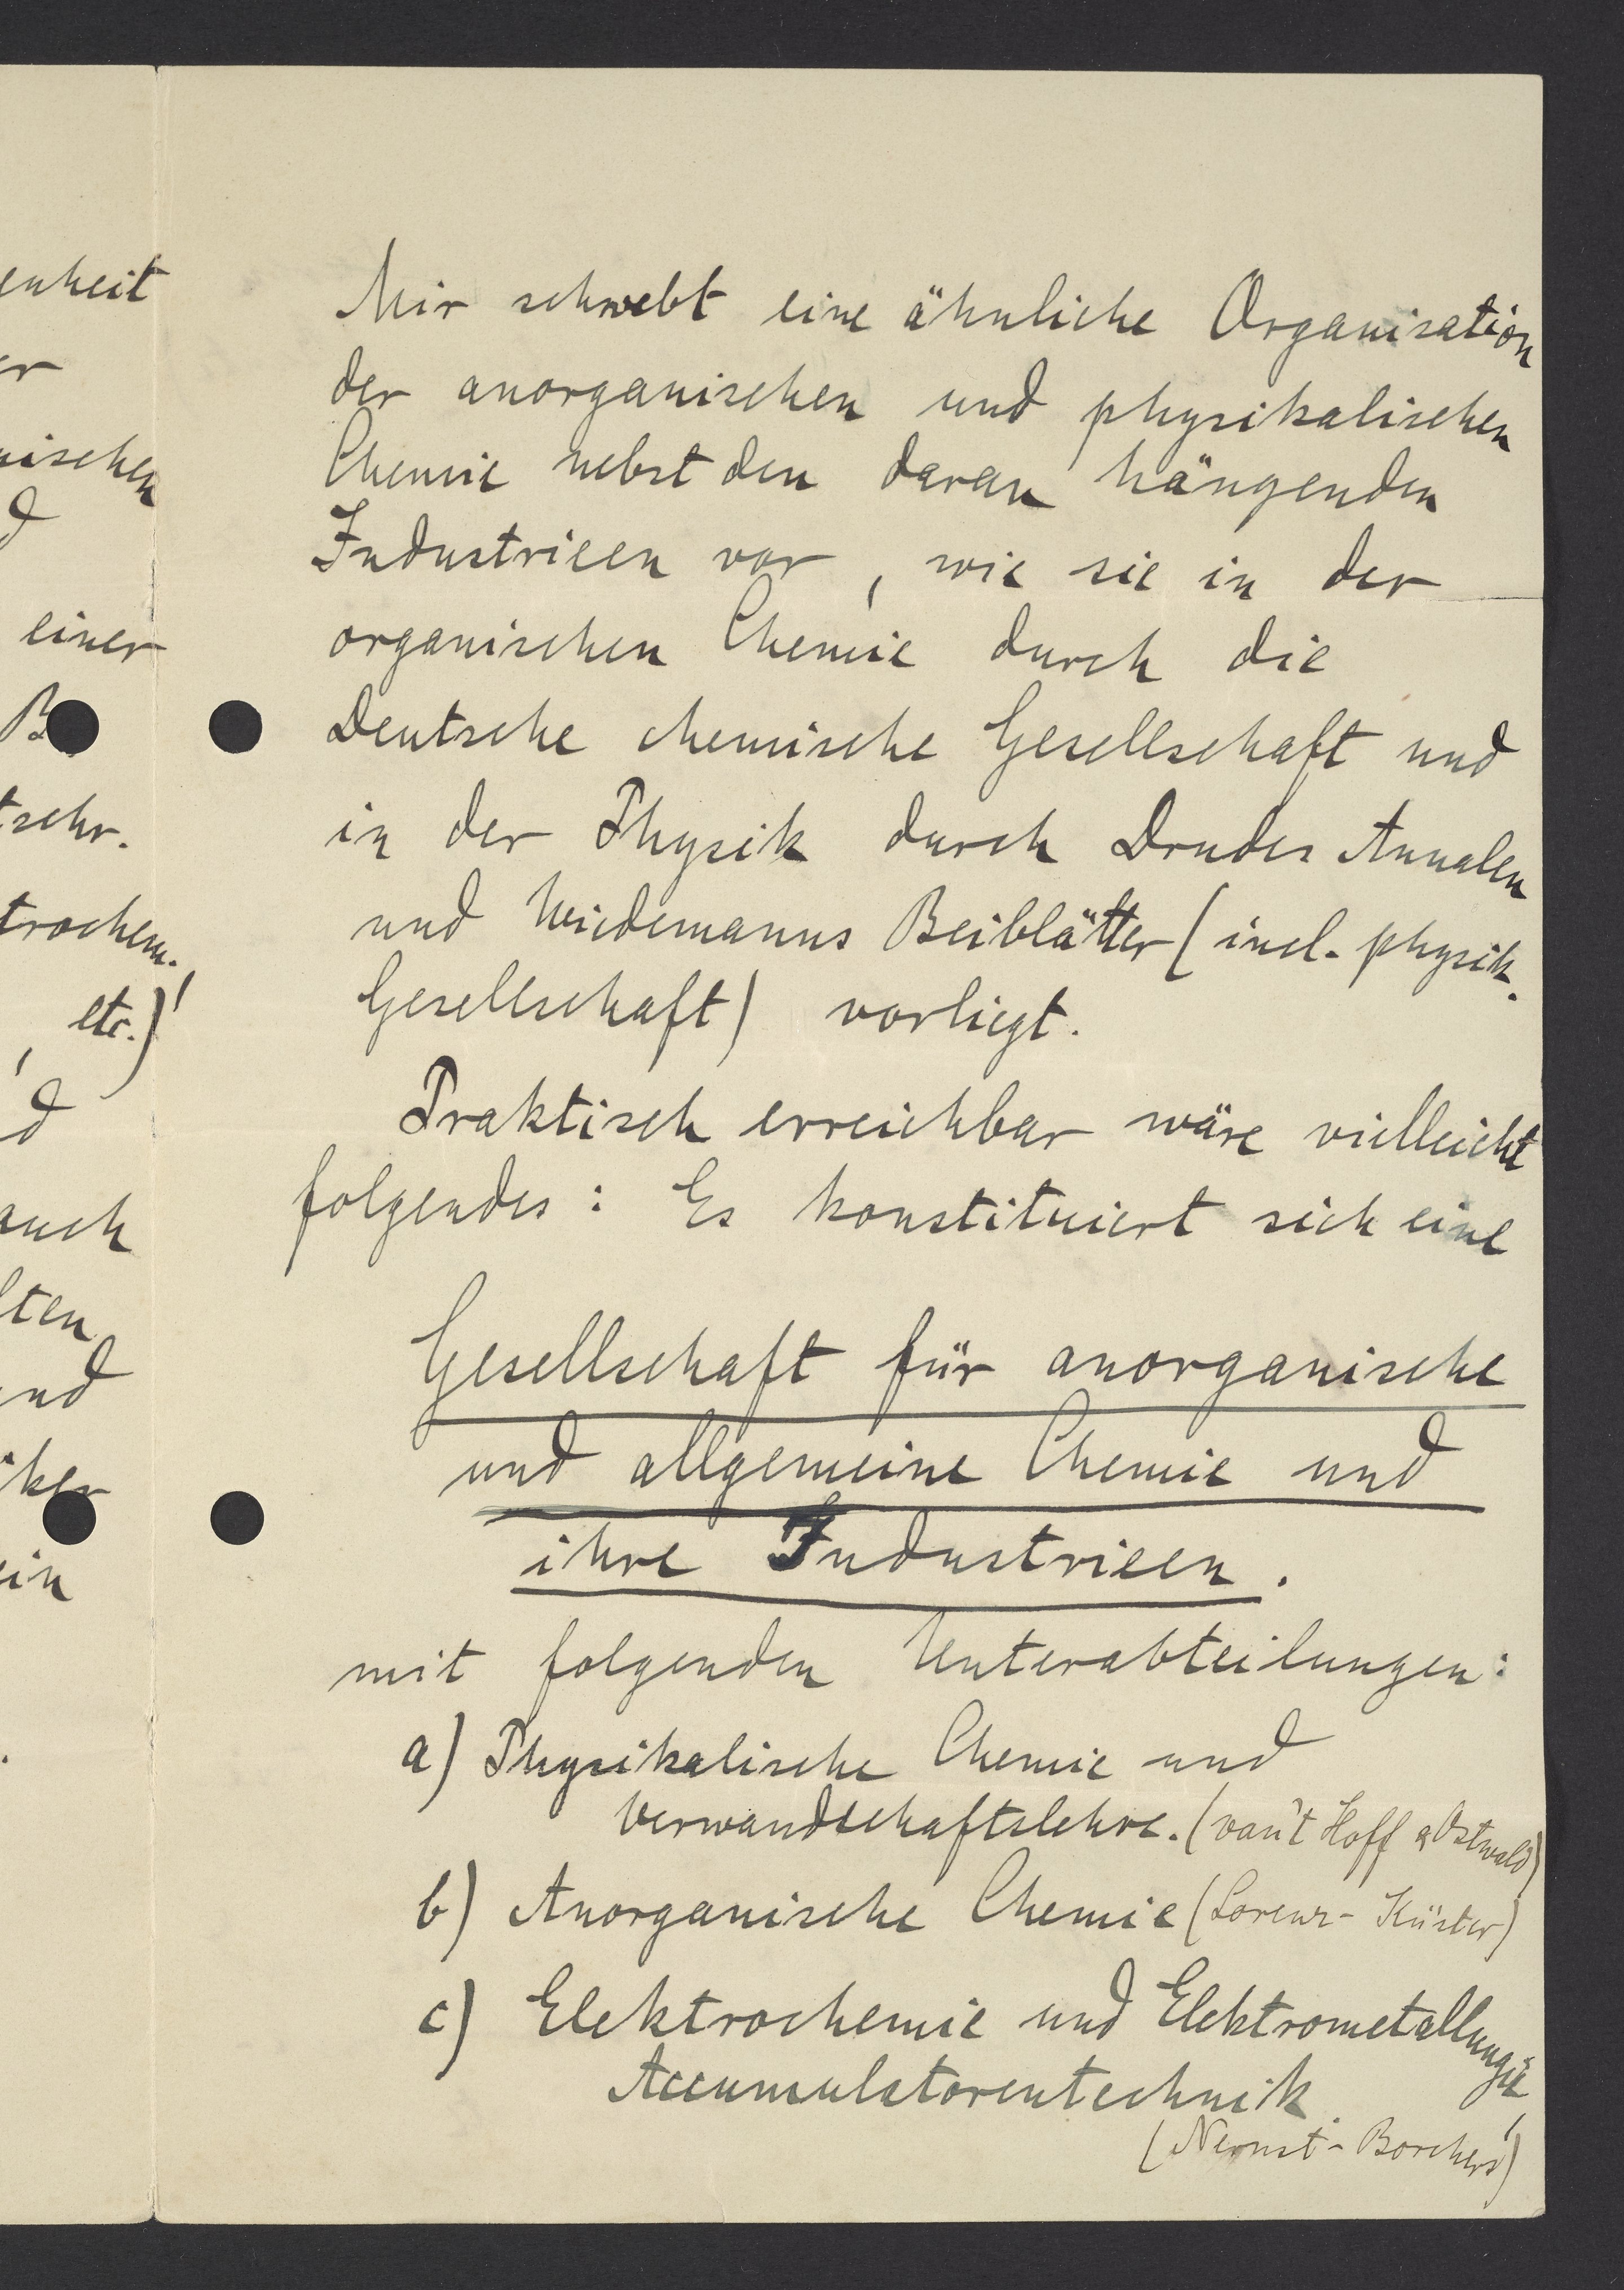 enheit
er
nischen
d
einer
B
tschr.
trochem.
, etc.)'
d
auch
lten
und
iker
ein
Mir schwebt eine ähnliche Organisation
der anorganischen und physikalischen
Chemie nebst den daran hängenden
Industrieen vor, wie sie in der
organischen Chemie durch die
Deutsche chemische Gesellschaft und
in der Physik durch Drudes Annalen
und Wiedemanns Beiblätter (incl. physik.
Gesellschaft) vorliegt.
Praktisch erreichbar wäre vielleicht
folgendes: Es konstituiert sich eine
Gesellschaft für anorganische
und allgemeine Chemie und
ihre Industrieen.
mit folgenden Unterabteilungen:
a) Physikalische Chemie und
Verwandschaftslehre. (van't Hoff & Ostwald)
b) Anorganische Chemie (Lorenz - Küster)
c) Elektrochemie und Elektrometallurgie,
Accumulatorentechnik
(Nernst - Borchers)